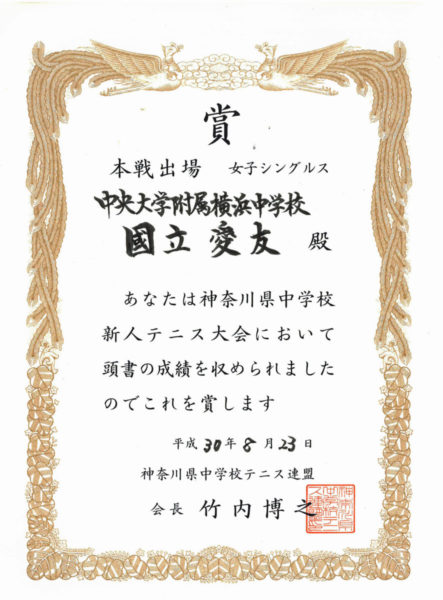 賞
本戦出場 女子シングルス
中央大学附属横浜中学校
國立愛友 殿
あなたは神奈川県中学校
新人テニス大会において
頭書の成績を収められました
のでこれを賞します
平成30年8月23日
神奈川県中学校テニス連盟
会長 竹内博之